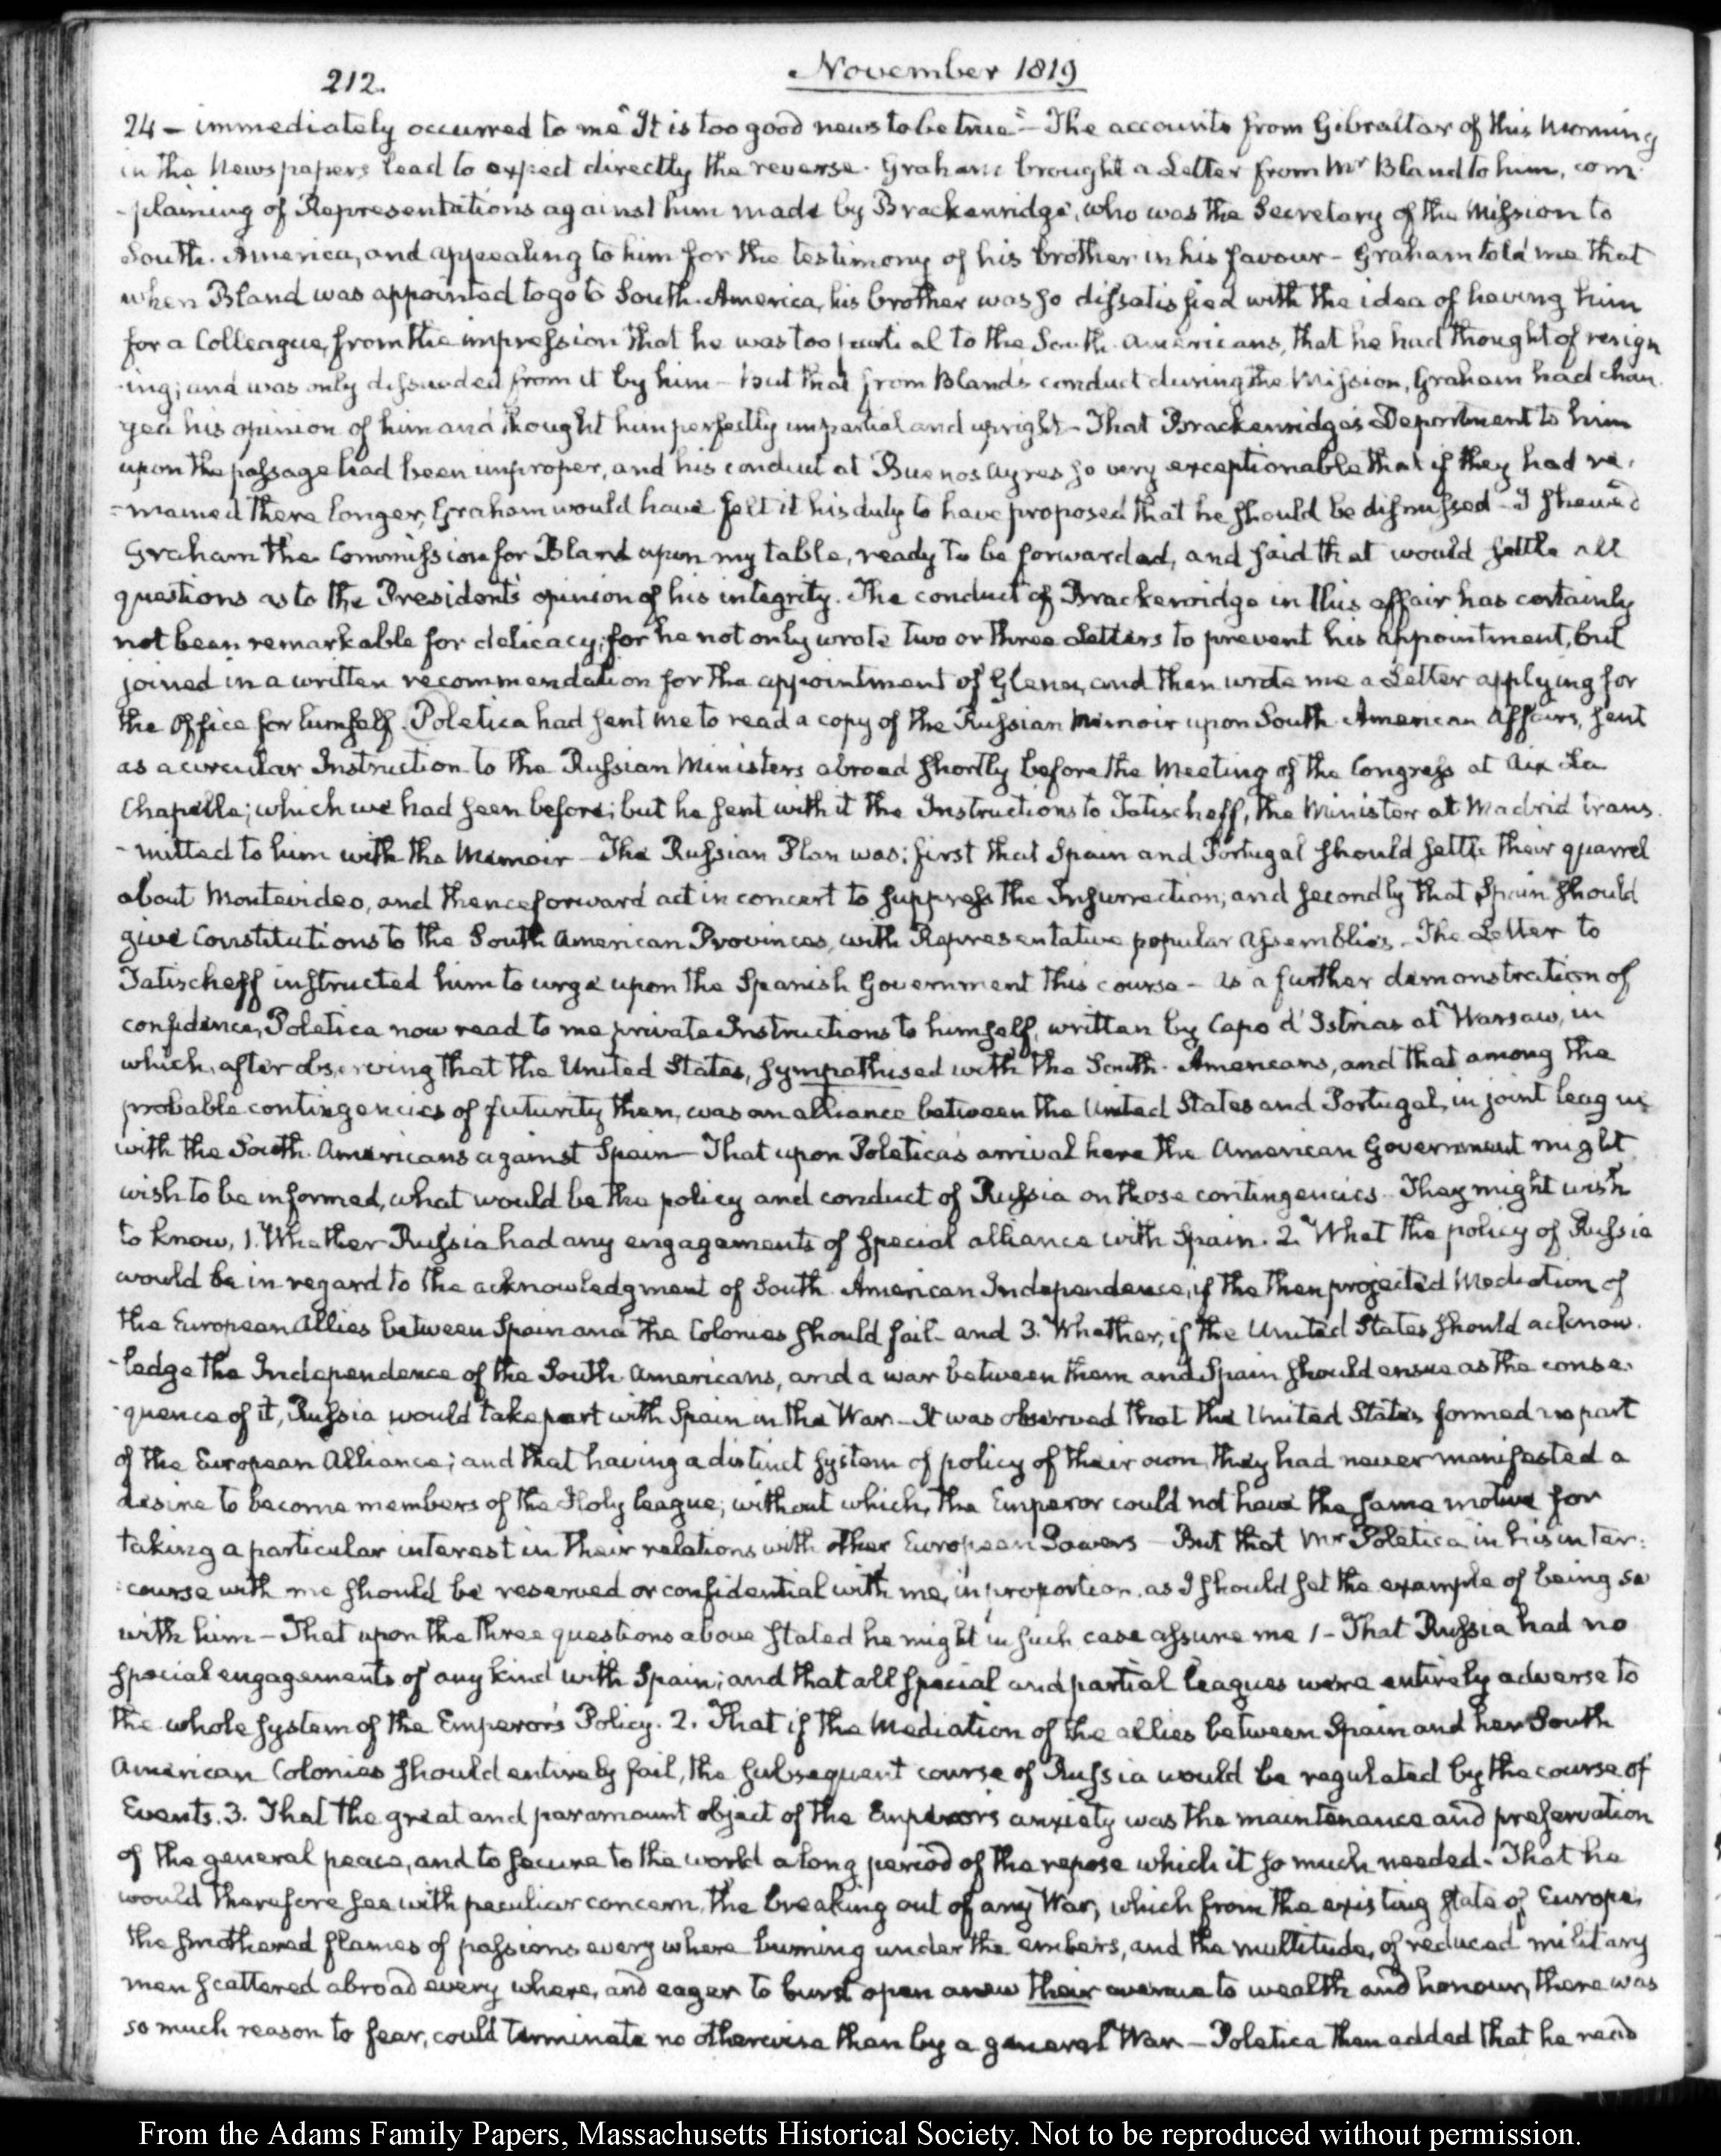 212.
November 1819
24 – immediately occurred to me "It is too good news to be true" – The accounts from Gibraltar of this Morning
in the Newspapers lead to expect directly the reverse. Graham brought a Letter from Mr Bland to him, com-
-plaining of Representations against him made by Brackenridge, who was the Secretary of the Mission to
South-America, and appealing to him for the testimony of his brother in his favour – Graham told me that
when Bland was appointed to go to South-America, his brother was so dissatisfied with the idea of having him
for a Colleague, from the impression that he was too partial to the South-Americans, that he had thought of resign
-ing; and was only dissuaded from it by him – But that from Bland's conduct during the Mission, Graham had chan-
ged his opinion of him and thought him perfectly impartial and upright – That Brackenridge's Deportment to him
upon the passage had been improper, and his conduct at Buenos Ayres so very exceptionable that if they had re-
-mained there longer, Graham would have felt it his duty to have proposed that he should be dismissed – I shewed
Graham the Commission for Bland upon my table, ready to be forwarded, and said that would settle all
questions as to the President's opinion of his integrity. The conduct of Brackenridge in this affair has certainly
not been remarkable for delicacy; for he not only wrote two or three Letters to prevent his appointment, but
joined in a written recommendation for the appointment of Glenn, and then wrote me a Letter applying for
the Office for himself. Poletica had sent me to read a copy of the Russian Memoir upon South-American Affairs, sent
as a circular Instruction to the Russian Ministers abroad shortly before the Meeting of the Congress at Aix La
Chapelle; which we had seen before; but he sent with it the Instructions to Tatischeff, the Minister at Madrid trans-
-mitted to him with the Memoir – The Russian Plan was; first that Spain and Portugal should settle their quarrel
about Montevideo, and thenceforward act in concert to suppress the Insurrection; and secondly that Spain should
give Constitutions to the South American Provinces, with Representative popular Assemblies – The Letter to
Tatischeff instructed him to urge upon the Spanish Government this course – As a further demonstration of
confidence, Poletica now read to me private Instructions to himself, written by Capo d'Istrias at Warsaw, in
which, after observing that the United States, sympathised with the South-Americans, and that among the
probable contingencies of futurity then, was an alliance between the United States and Portugal, in joint league
with the South-Americans against Spain – That upon Poletica's arrival here the American Government might
wish to be informed, what would be the policy and conduct of Russia on those contingencies – They might wish
to know, 1. Whether Russia had any engagements of special alliance with Spain. 2. What the policy of Russia
would be in regard to the acknowledgment of South-American Independence, if the then projected Mediation of
the European Allies between Spain and the Colonies should fail – and 3. Whether, if the United States should acknow-
-ledge the Independence of the South-Americans, and a war between them and Spain should ensue as the conse-
-quence of it, Russia would take part with Spain in the War – It was observed that the United States formed no part
of the European Alliance; and that having a distinct system of policy of their own, they had never manifested a
desire to become members of the Holy league; without which, the Emperor could not have the same motive for
taking a particular interest in their relations with other European Powers – But that Mr Poletica in his inter-
-course with me should be reserved or confidential with me, in proportion, as I should set the example of being so
with him – That upon the three questions above stated he might in such case assure me 1 – That Russia had no
special engagements of any kind with Spain; and that all special and partial leagues were entirely adverse to
the whole system of the Emperor's Policy. 2. That if the Mediation of the allies between Spain and her South
American Colonies should entirely fail, the subsequent course of Russia would be regulated by the course of
Events. 3. That the great and paramount object of the Emperor's anxiety was the maintenance and preservation
of the general peace, and to secure to the world a long period of the repose which it so much needed – That he
would therefore see with peculiar concern, the breaking out of any War, which from the existing state of Europe,
the smothered flames of passions every where burning under the embers, and the multitude, of reduced military
men scattered abroad every where, and eager to burst open anew their avenue to wealth and honour, there was
so much reason to fear, could terminate no otherwise than by a general War – Poletica then added that he read
From the Adams Family Papers, Massachusetts Historical Society. Not to be reproduced without permission.